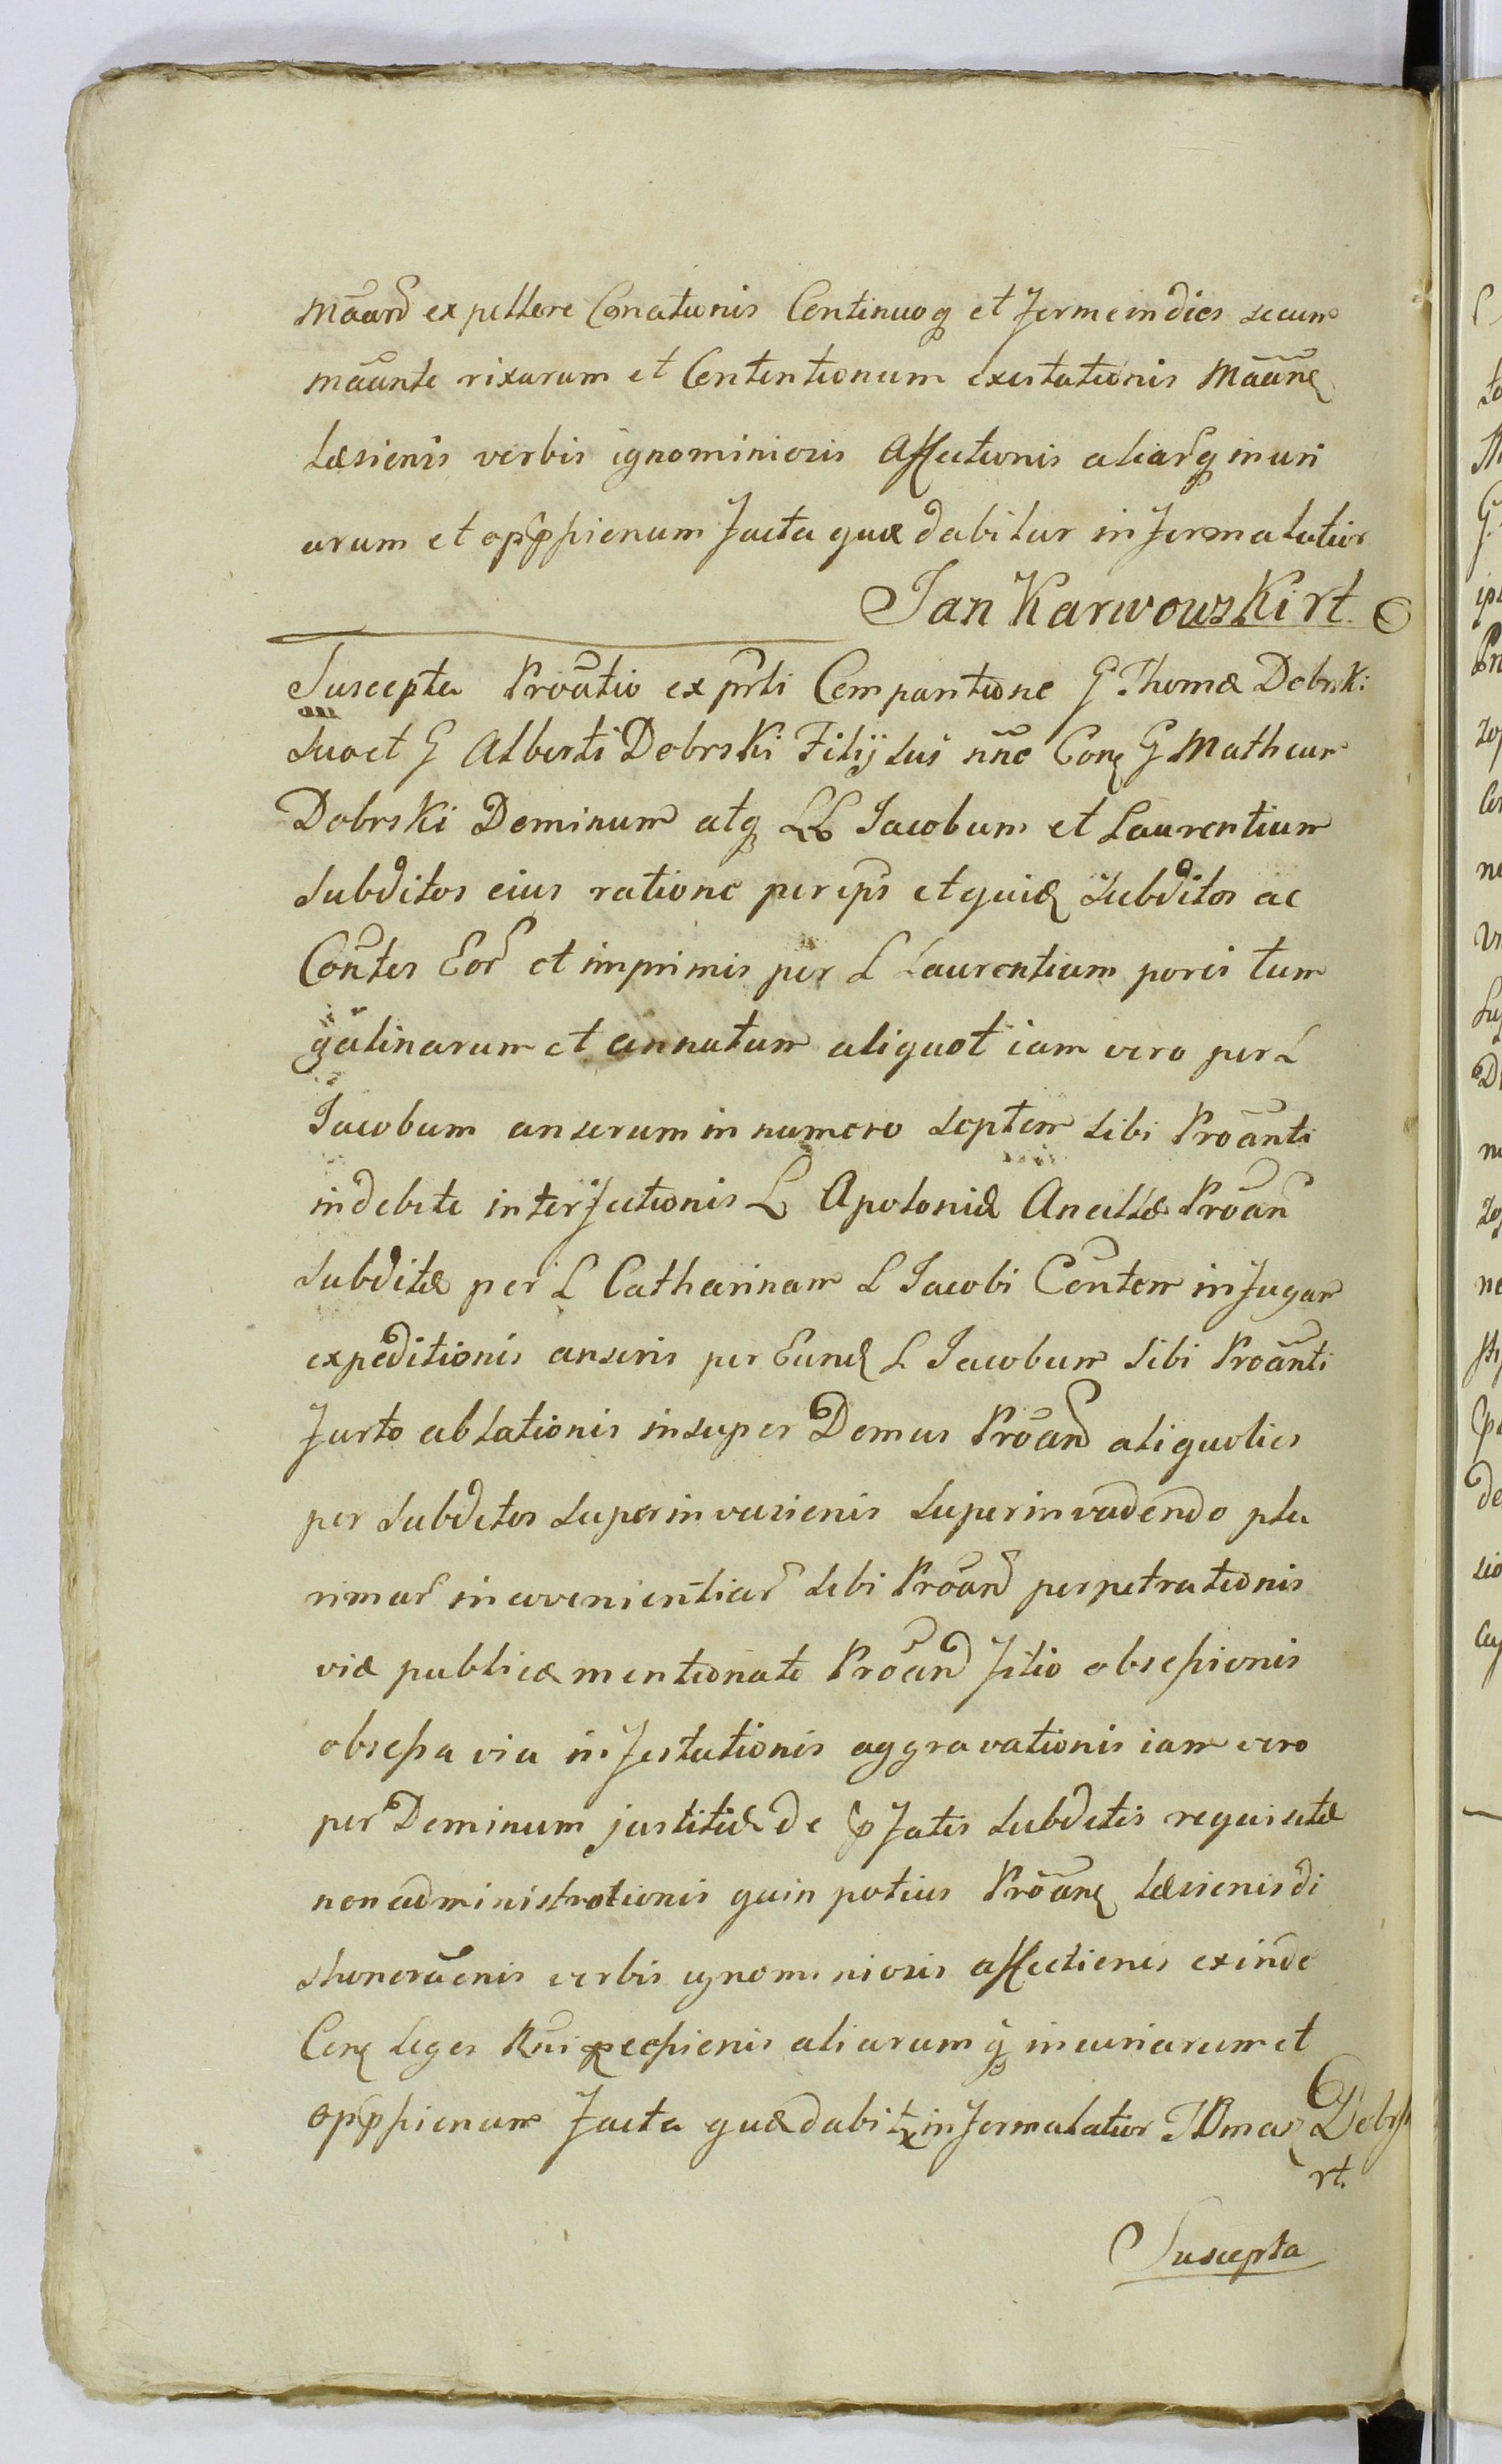 Māand expellere Conationis Continuoq et ferme in dies secum
māante rixarum et Contentionum excitationis Māane
Læsionis verbis ignominiosis Affectionis aliarq iniuri
arum et oppssionum facta quæ dabitur in termalatior
Jan Karwowski rt.
Suscepta Proatio ex prti Comparitione G Thomæ Dobrski
suo et G Alberti Dobrski Filij sui nñe Con G Matheum
Dobrski Dominum atq LL Jacobum et Laurentium
Subditos eius ratione per ips et quid Subditos ac
Contes Eor et imprimis per L Laurentium porci tum
galinarum et annatum aliquot iam vero per L
Jacobum anserum in numero septem sibi Proanti
indebite interfectionis L Apoloniæ Ancillæ Proan
Subditæ per L Catharinam L Jacobi Contem in fugam
expeditionis anseris per Eund L Jacobum Sibi Proanti
furto ablationis insuper Domus Proand aliquoties
per Subditos superinvasionis superinvadendo plu
rimar inconvenientiar sibi Proand perpetrationis
viæ publicæ mentionate Proand sitio obsessionis
obsessa via infestationis aggravationis iam vero
per Dominum justitiæ de pfatis Subditis requisitæ
non administrationis quin potius Proane Læsionis di
shonoraonis verbis ignominiosis affectionis exinde
Con Leges Rni excessionis aliarumq iniuriarum et
oppssionum facta quæ dabitr informalatior Thmas Dobrs
rt.
Suscepta